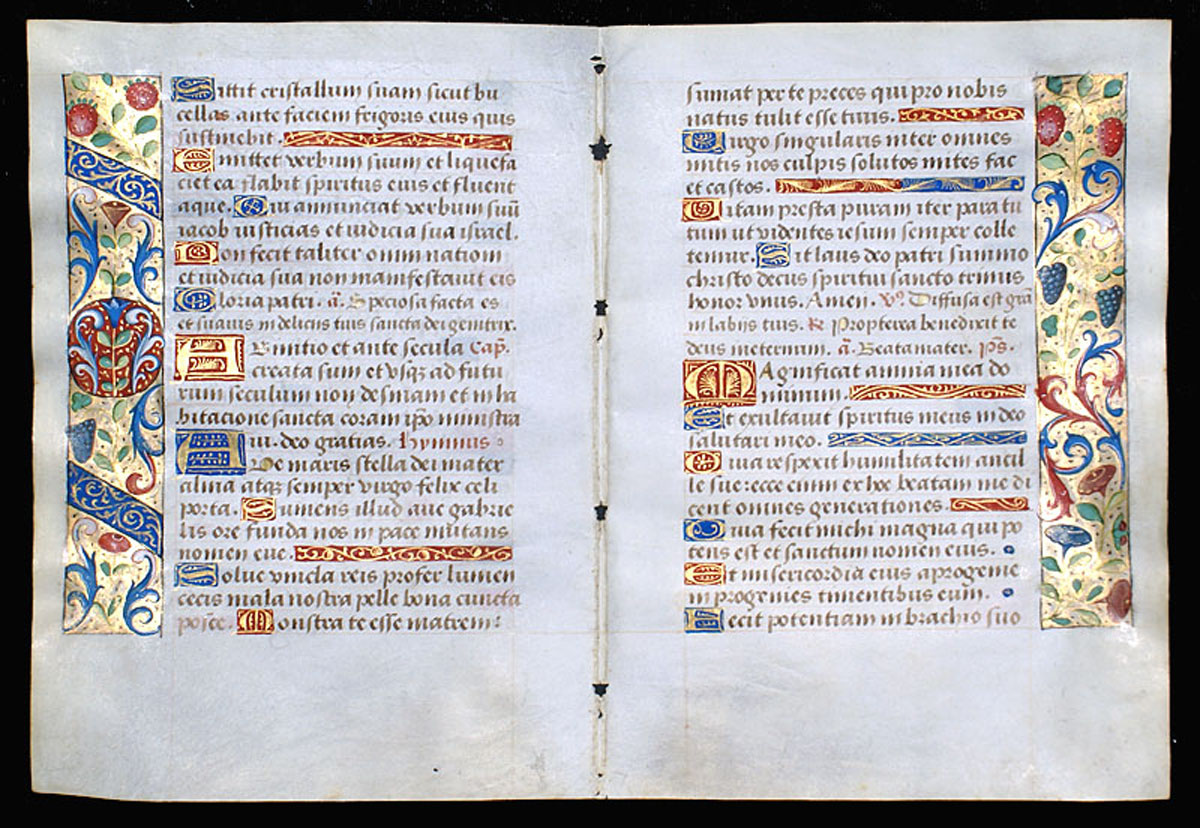 Mittit cristallum suam sicut bu
cellas ante faciem frigoris eius quis
sustinebit.
Emittet verbum suum et liquefa
ciet ea flabit spiritus eius et fluent
aque. Qui annunciat verbum suū
iacob iusticias et iudicia sua israel.
Non fecit taliter omni nationi
et iudicia sua non manifestavit eis
Gloria patri. ā. Speciosa facta es
et suavis in deliciis tuis sancta dei genitrix.
Ab initio et ante secula Cap̄.
creata sum et vsqȝ ad futu
rum seculum non desinam et in ha
bitacione sancta coram ip̄o ministra
ui. deo gratias. Hymnus
Aue maris stella dei mater
alma atqȝ semper virgo felix celi
porta. Sumens illud aue gabrie
lis ore funda nos in pace mutans
nomen eue.
Solue vincla reis profer lumen
cecis mala nostra pelle bona cuncta
posce. Monstra te esse matrem:
sumat per te preces qui pro nobis
natus tulit esse tuus.
Virgo singularis inter omnes
mitis nos culpis solutos mites fac
et castos.
Vitam presta puram iter para tu
tum ut videntes iesum semper colle
temur. Sit laus deo patri summo
christo decus spiritui sancto trinus
honor vnus. Amen. v̄. Diffusa est grā
in labijs tuis. R̄ Propterea benedixit te
deus ineternum. ā. Beata mater. p̄s.
Magnificat anima mea do
minum.
Et exultauit spiritus meus in deo
salutari meo.
Quia respexit humilitatem ancil
le sue ecce enim ex hoc beatam me di
cent omnes generationes.
Quia fecit michi magna qui po
tens est et sanctum nomen eius.
Et misericordia eius a progenie
in progenies timentibus eum.
Fecit potentiam in brachio suo